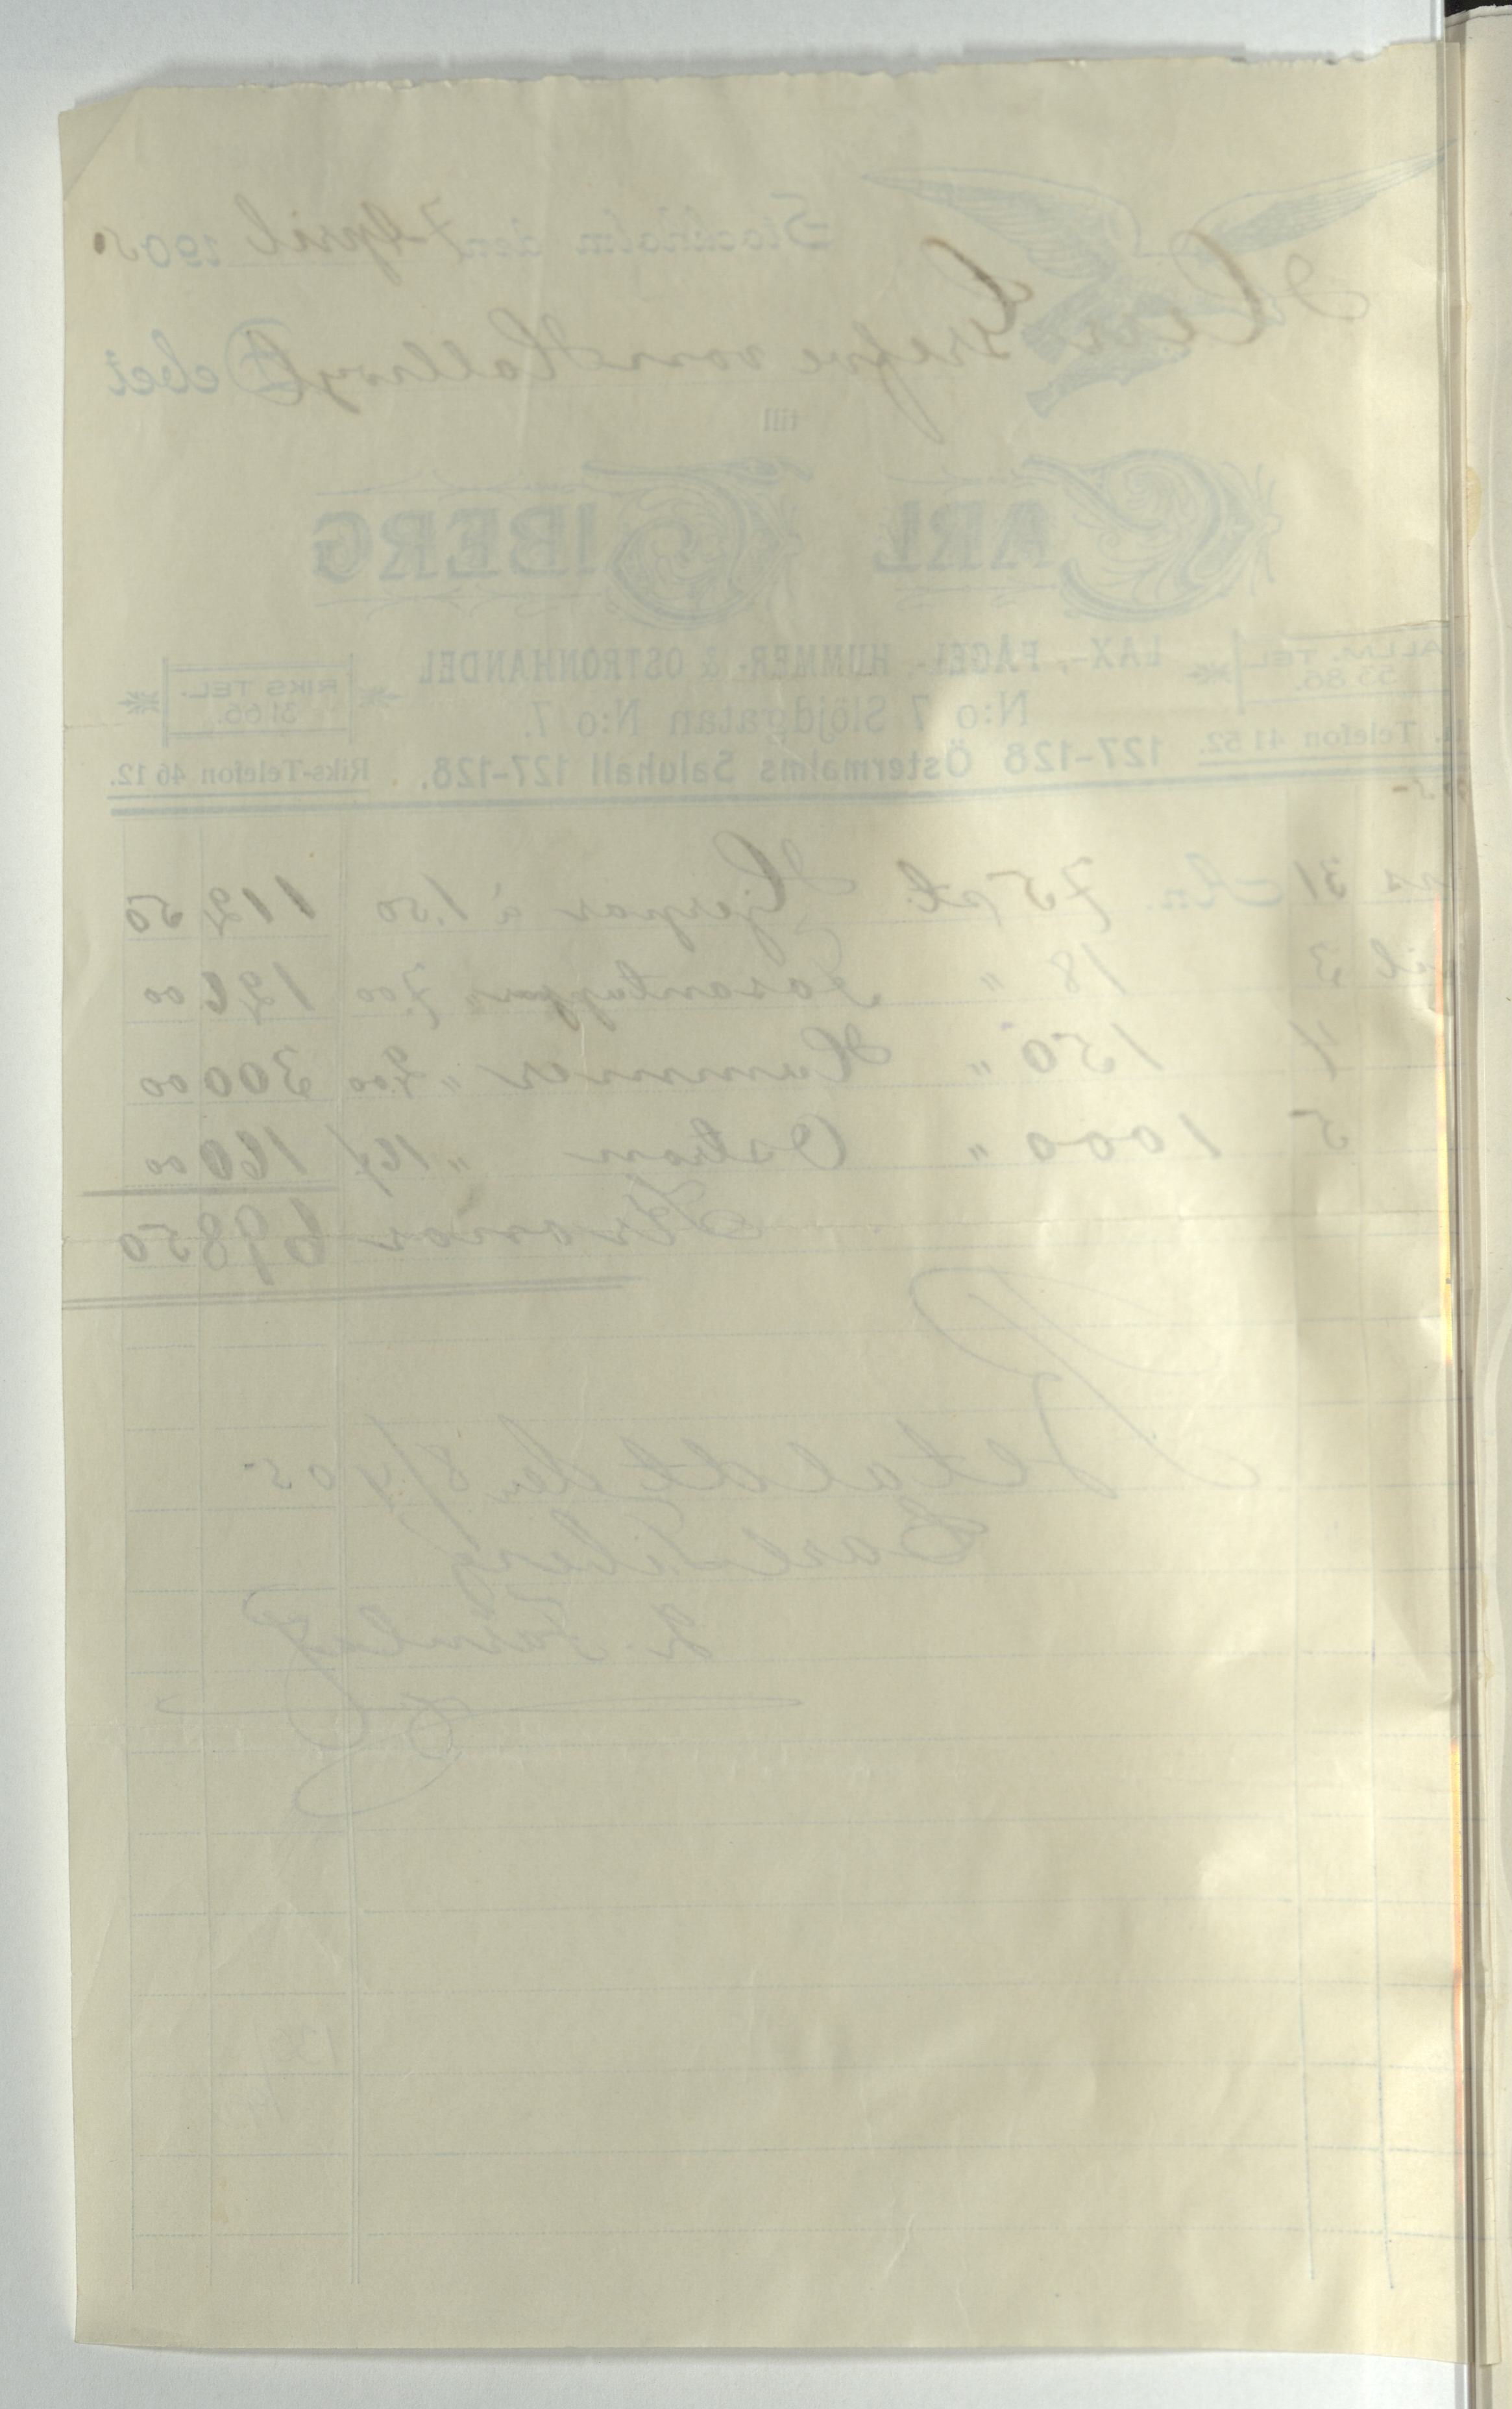 Stockholm den 7 April 1905.
Herr Grefve von Hallwyl Debet
till
CARL TIBERG
LAX-, FÅGEL-, HUMMER- & OSTRONHANDEL
ALLM. TEL. 53 86.
RIKS TEL. 31 66.
N:o 7 Slöjdgatan N:o 7.
. Telefon 41 52. 127-128 Östermalms Saluhall 127-128. Riks-Telefon 46 12.
31 75 st. Hjerpar à 1.50 112 50
3 18 " 7.00 126 00
4 150 " Hummer " 2.00 300 00
5 1000 " Ostron " 16/ 160 00
Kronor 698 50
Betaldt den 8/4 05
Carl Tiberg